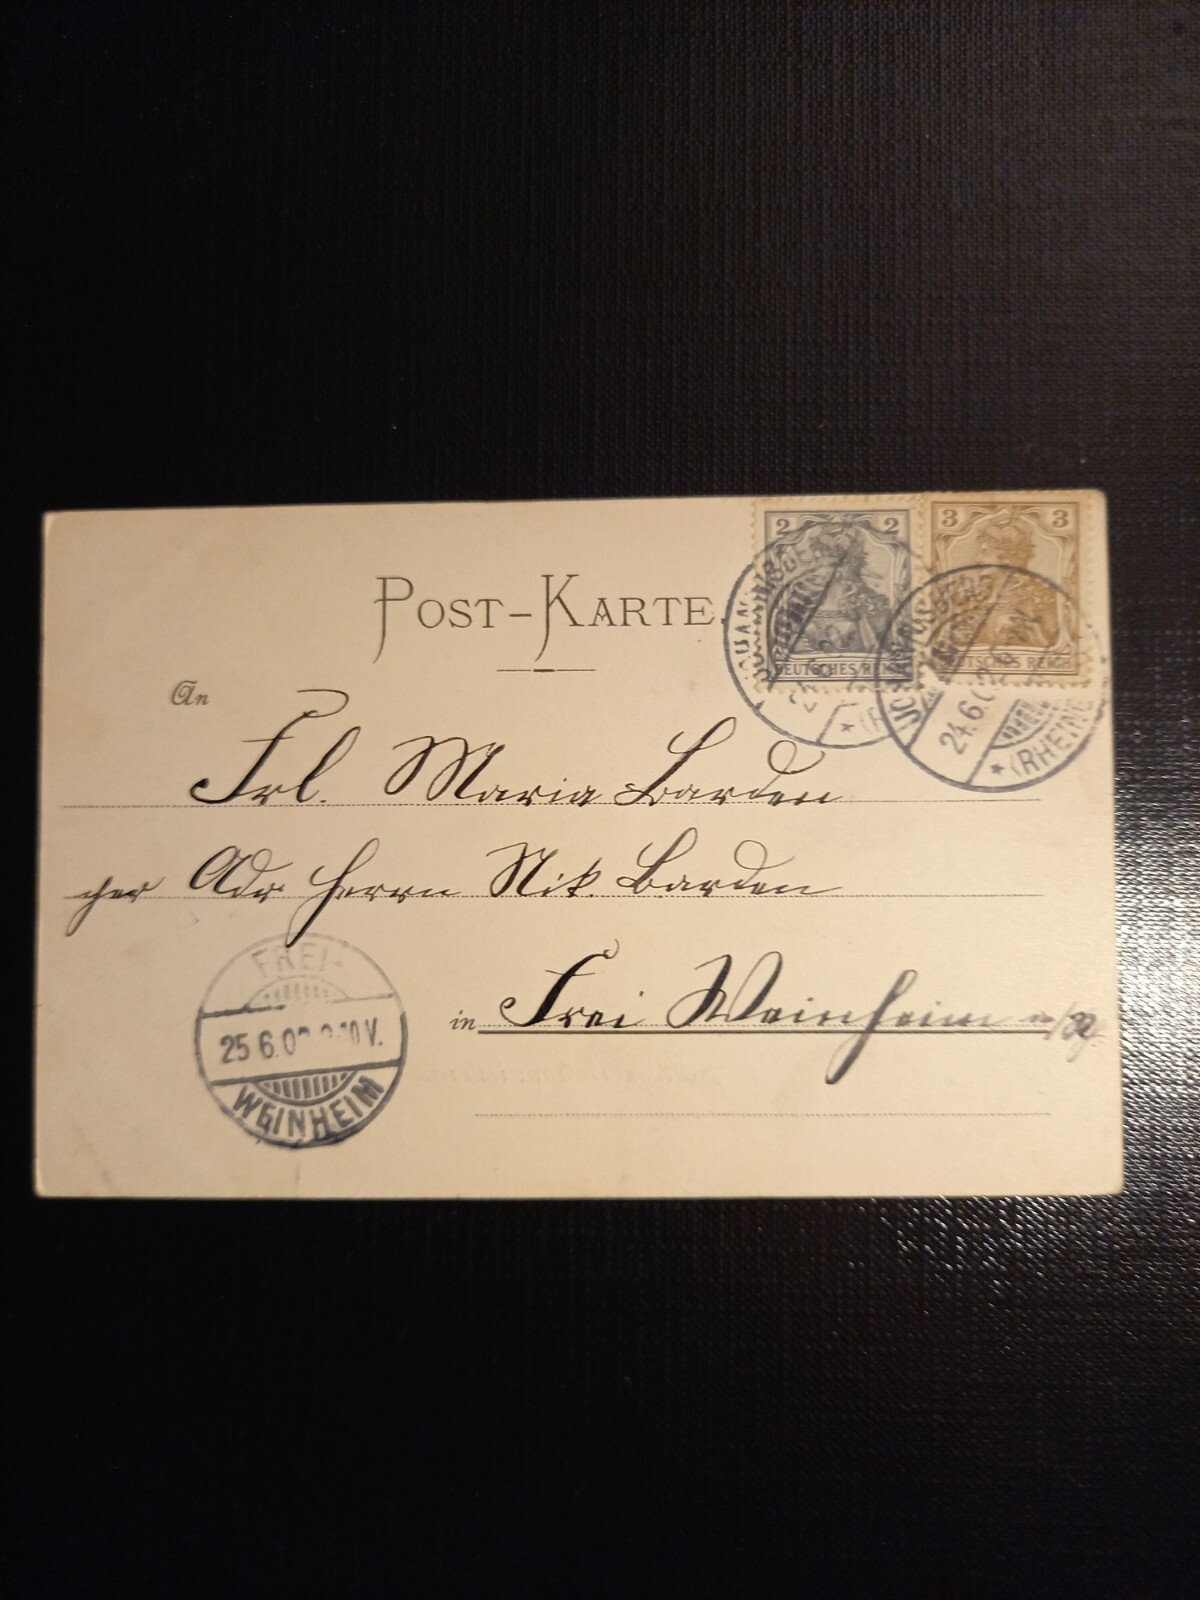 POST-KARTE.
2 2
DEUTSCHES REICH
3 3
DEUTSCHES REICH
JOHANNISBERG
JOHANNISBERG
24.6.0
(RHEING
An
Frl. Maria Barden
per Adr Herrn Nik. Barden
in Frei Weinheim a/Rh.
FREI-
25 6.0 10 V.
WEINHEIM